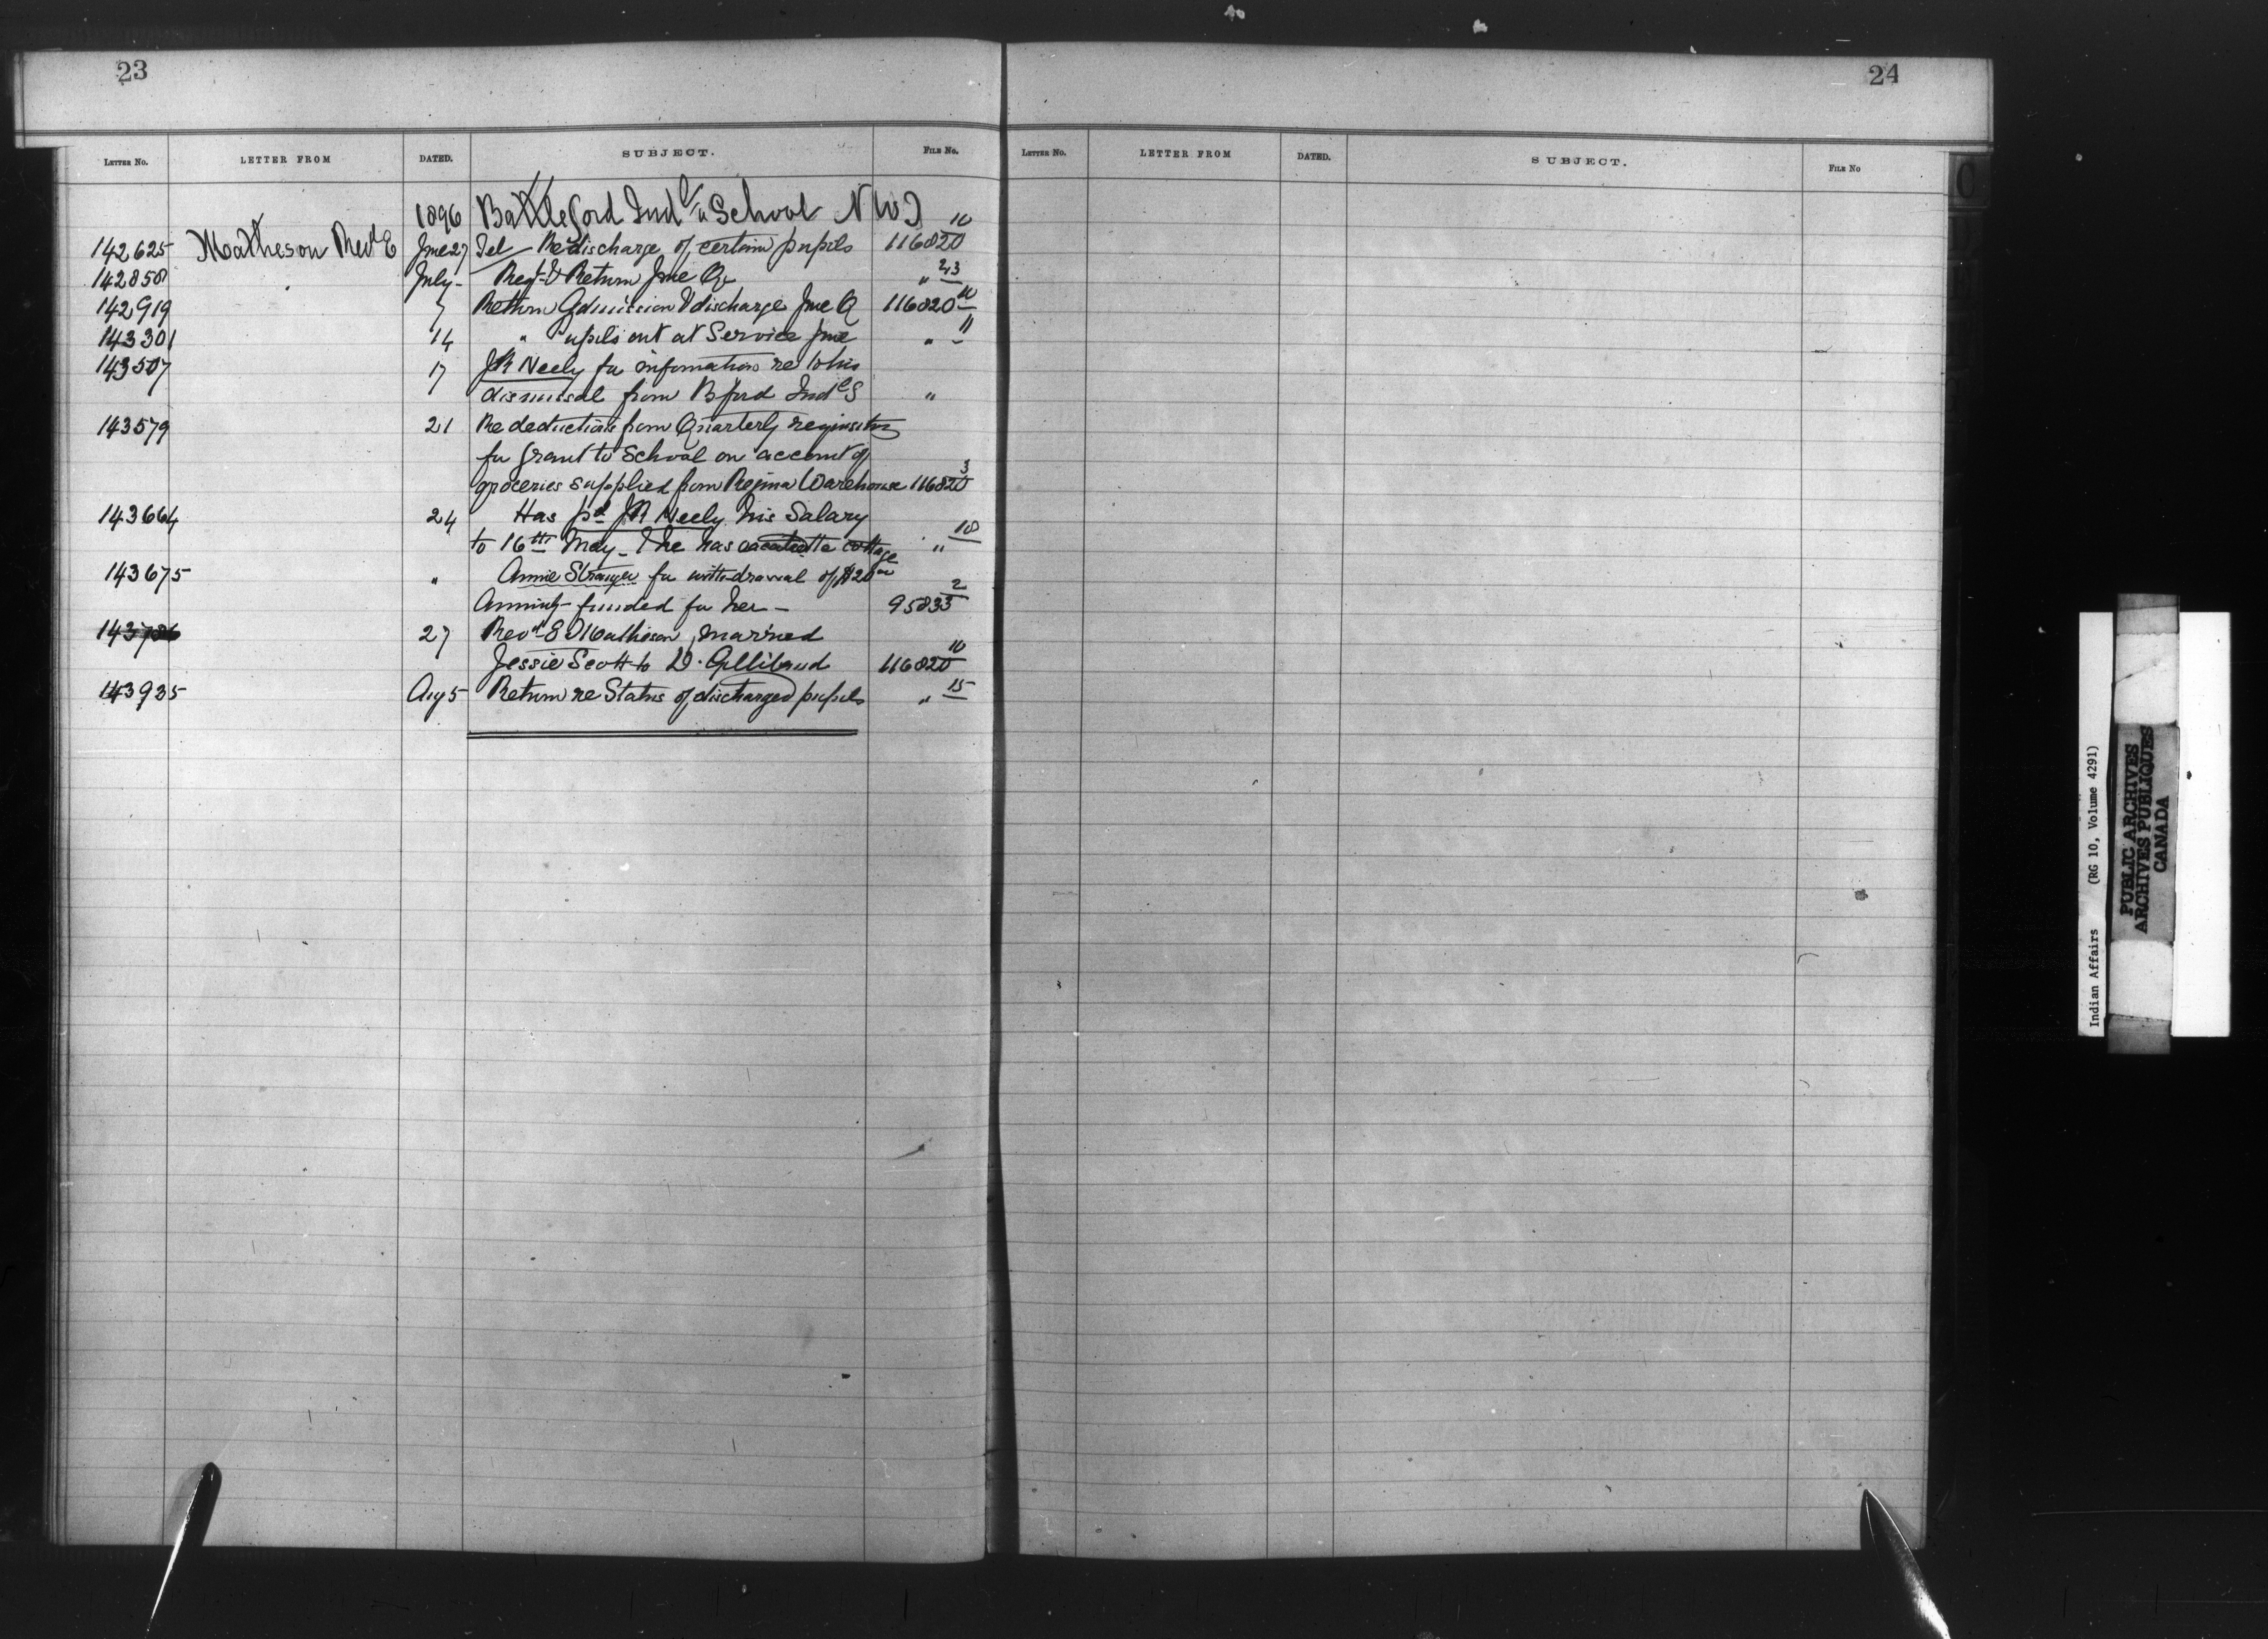 23
LETTER NO. LETTER FROM DATED. SUBJECT. FILE NO.
1896 Battleford Indl School NWT
142625 Matheson Revd E June 27 Tel Re discharge of certain pupils 116820 10
142858 July - Reqn & Return June Qr " 2/3
142919 7 Return Admission & discharge June Q 116820 10
143301 14 " Pupils out at Service June " 11
143507 17 JR Neely for information re to his
dismissal from Bford Indl S "
143579 21 Re deductions from Quarterly requisition
for grant to School on account of
groceries supplied from Regina Warehouse 116820 3
143664 24 Has pd JR Neely his Salary
to 16th May - & he has vacated the cottage " 18
143675 " Annie Stranger for withdrawal of $20 00
Annuity funded for her - 95833 2
143786 27 Revd E Matheson married
Jessie Scott to D. Gilliland 116820 10
143935 Aug 5 Return re Status of discharged pupils " 15
24
LETTER NO. LETTER FROM DATED. SUBJECT. FILE NO
Indian Affairs (RG 10, Volume 4291)
PUBLIC ARCHIVES
ARCHIVES PUBLIQUES
CANADA